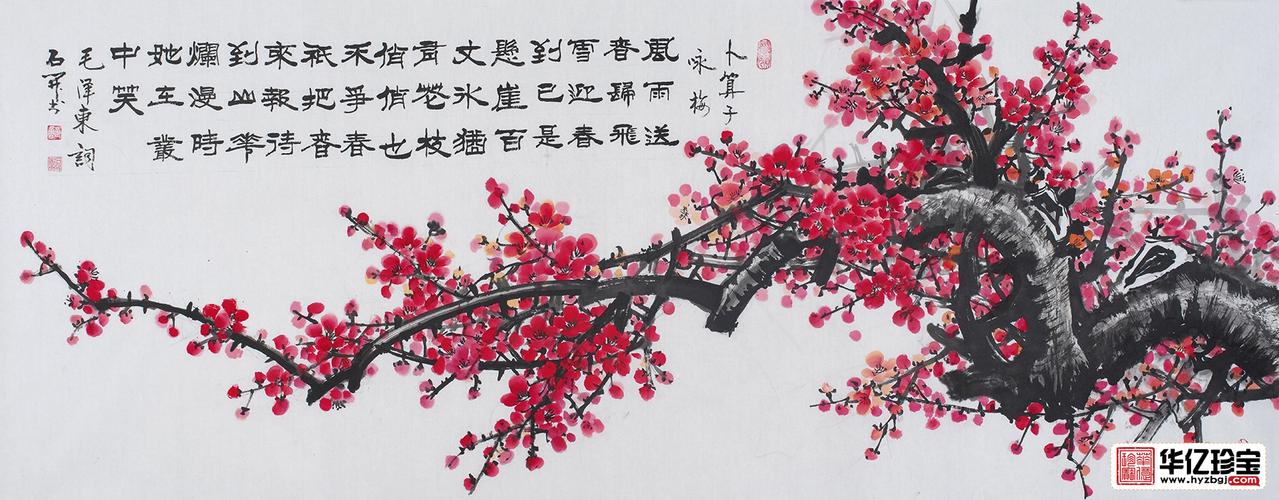 卜算子
咏梅
風雨送
春歸飛
雪迎春
到已是
懸崖百
丈冰猶
有花枝
俏俏也
不爭春
祇把春
來報待
到山華
爛漫時
她在叢
中笑
毛澤東詞
华亿珍宝
www.hyzbgj.com